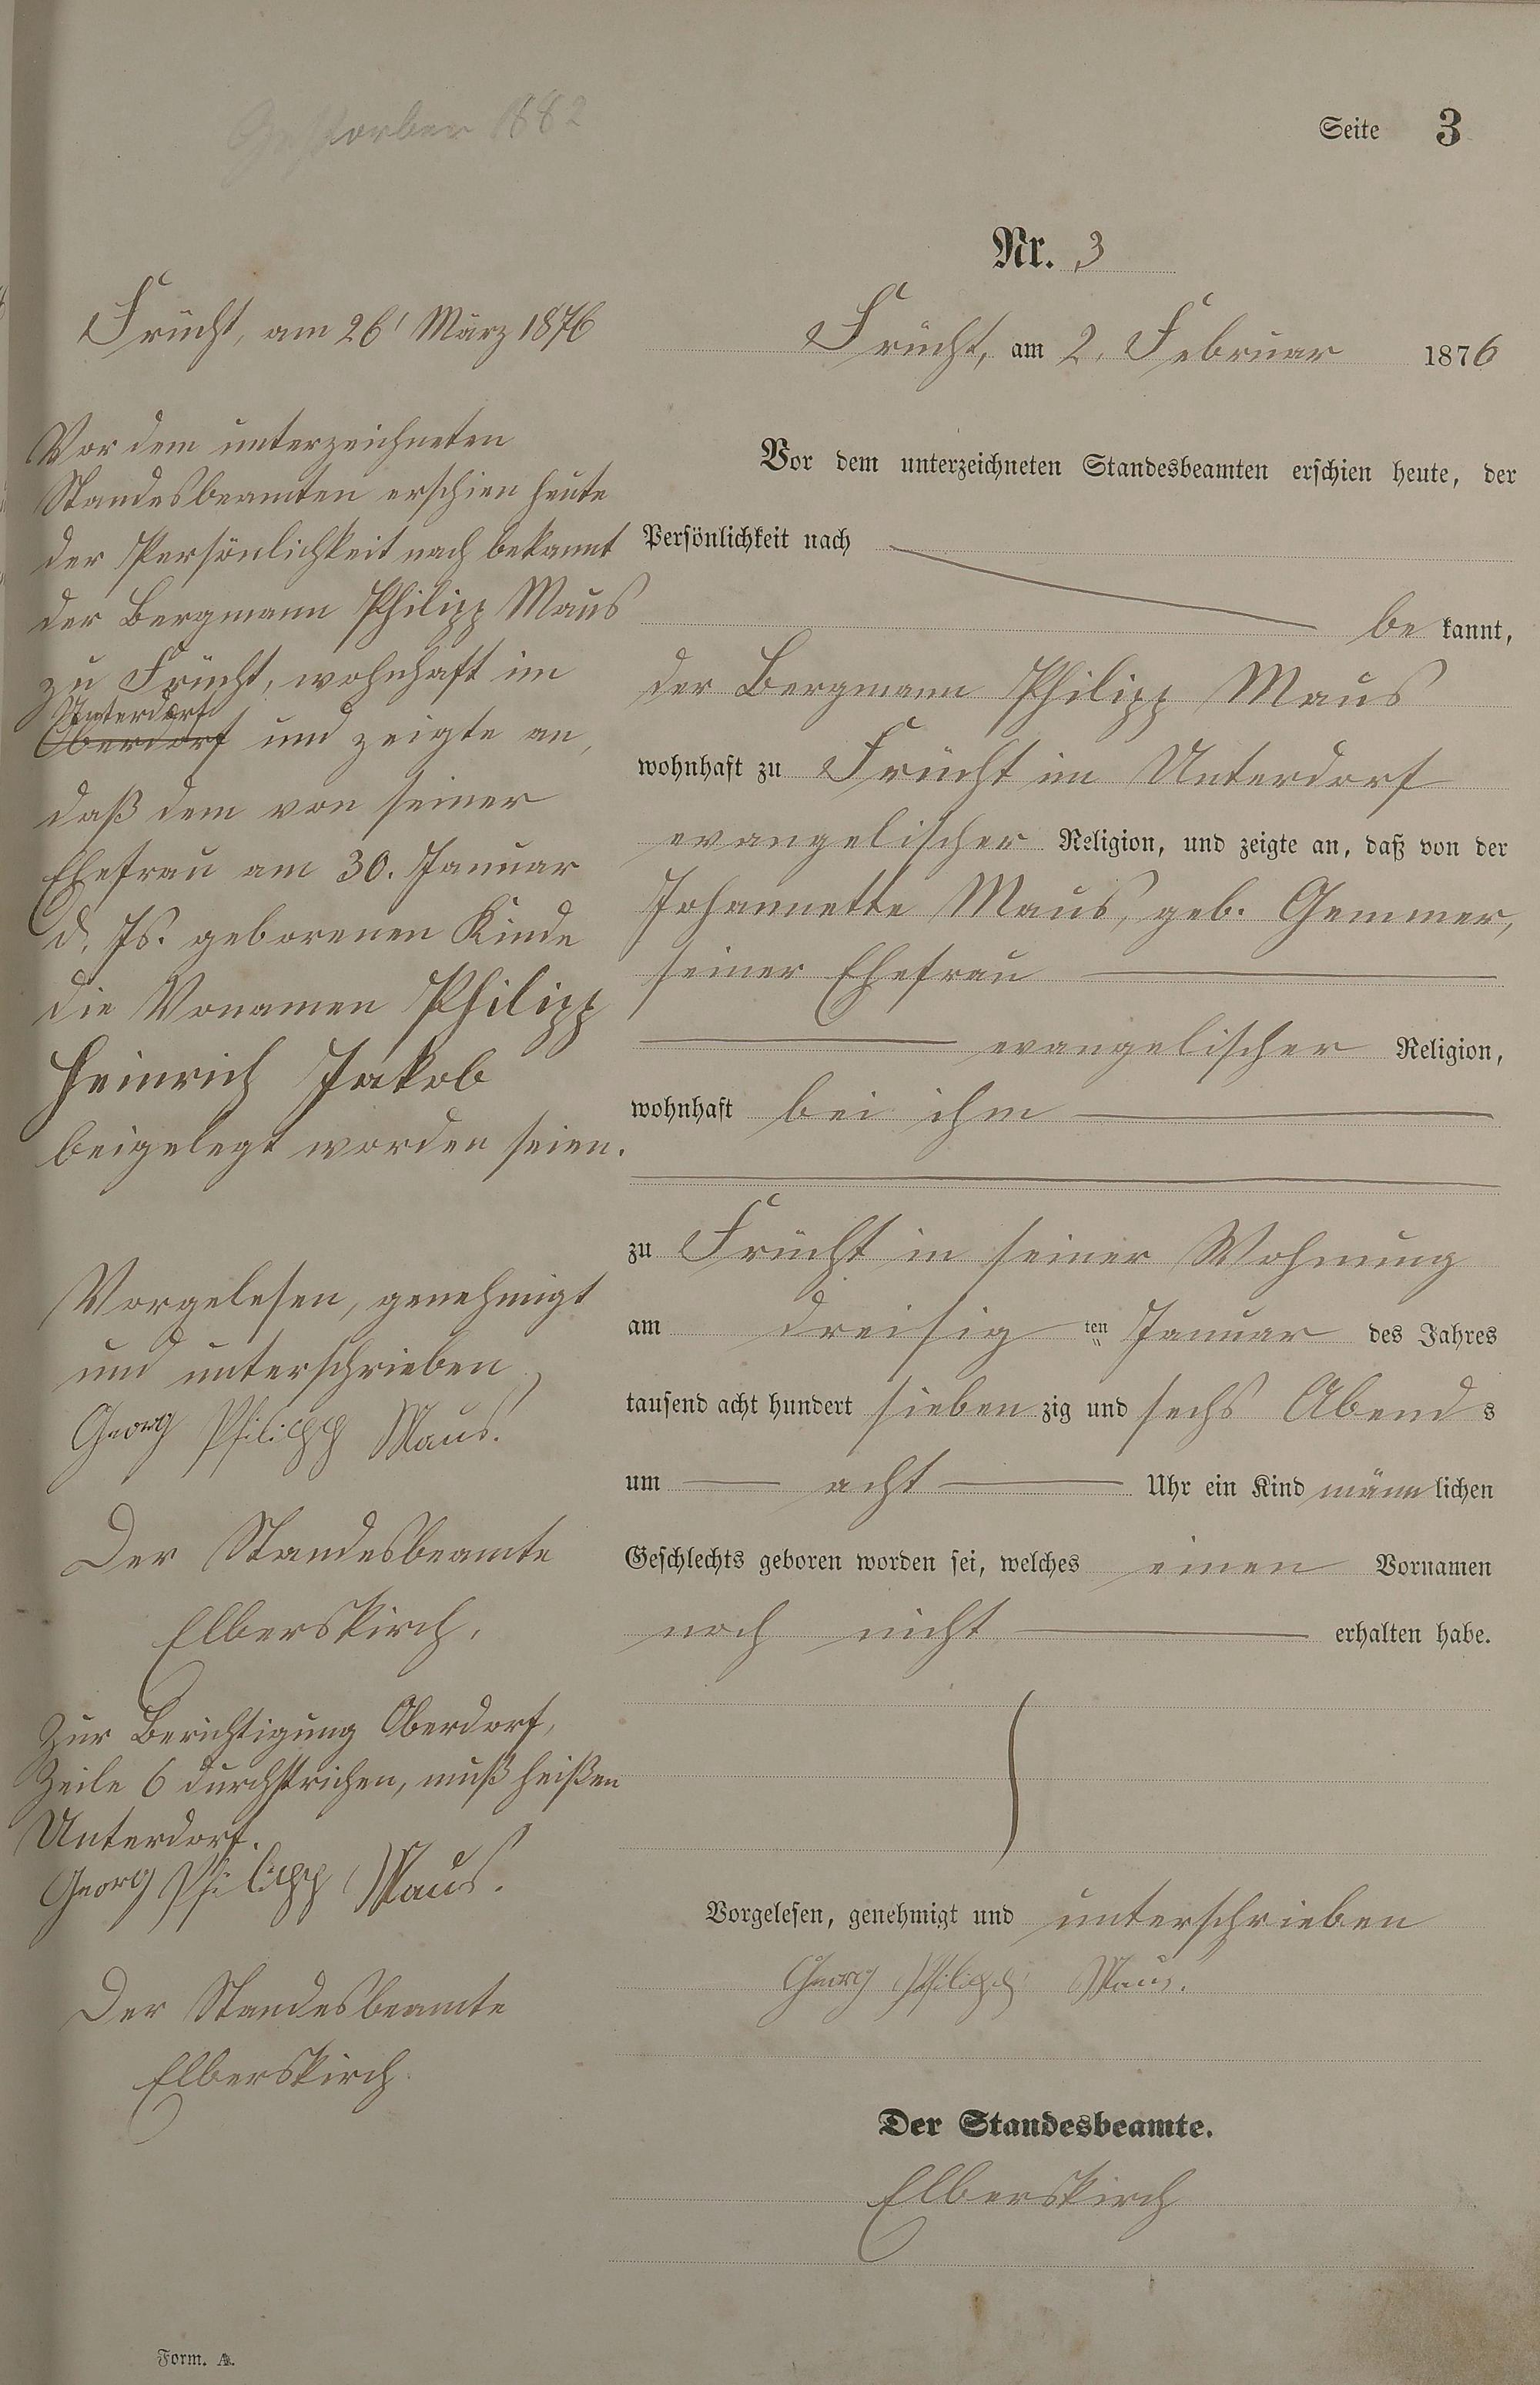 Gestorben 1882
Seite 3
Nr. 3
Frücht, am 2. Februar 1876
Vor dem unterzeichneten Standesbeamten erschien heute, der
Persönlichkeit nach
be kannt,
der Bergmann Philipp Maus
wohnhaft zu Frücht im Unterdorf
evangelischer Religion, und zeigte an, daß von der
Johannette Maus, geb. Gemmer,
seiner Ehefrau
evangelischer Religion,
wohnhaft bei ihm
zu Frücht in seiner Wohnung
am dreisig ten Januar des Jahres
tausend acht hundert sieben zig und sechs Abend s
um acht Uhr ein Kind männ lichen
Geschlechts geboren worden sei, welches einen Vornamen
noch nicht erhalten habe.
Vorgelesen, genehmigt und unterschrieben
Georg Philipp Maus.
Der Standesbeamte.
Elberskirch
Frücht, am 26' März 1876
Vor dem unterzeichneten
Standesbeamten erschien heute
der Persönlichkeit nach bekannt
der Bergmann Philipp Maus
zu Frücht, wohnhaft im
Unterdorf
Oberdorf und zeigte an,
daß dem von seiner
Ehefrau am 30. Januar
d. Js. geborenen Kinde
die Vonamen Philipp
Heinrich Jakob
beigelegt worden seien.
Vorgelesen, genehmigt
und unterschrieben
Georg Philipp Maus.
Der Standesbeamte
Elberskirch.
Zur Berichtigung Oberdorf,
Zeile 6 durchstrichen, muß heißen
Unterdorf.
Georg Philipp Maus.
Der Standesbeamte
Elberskirch.
Form. A.